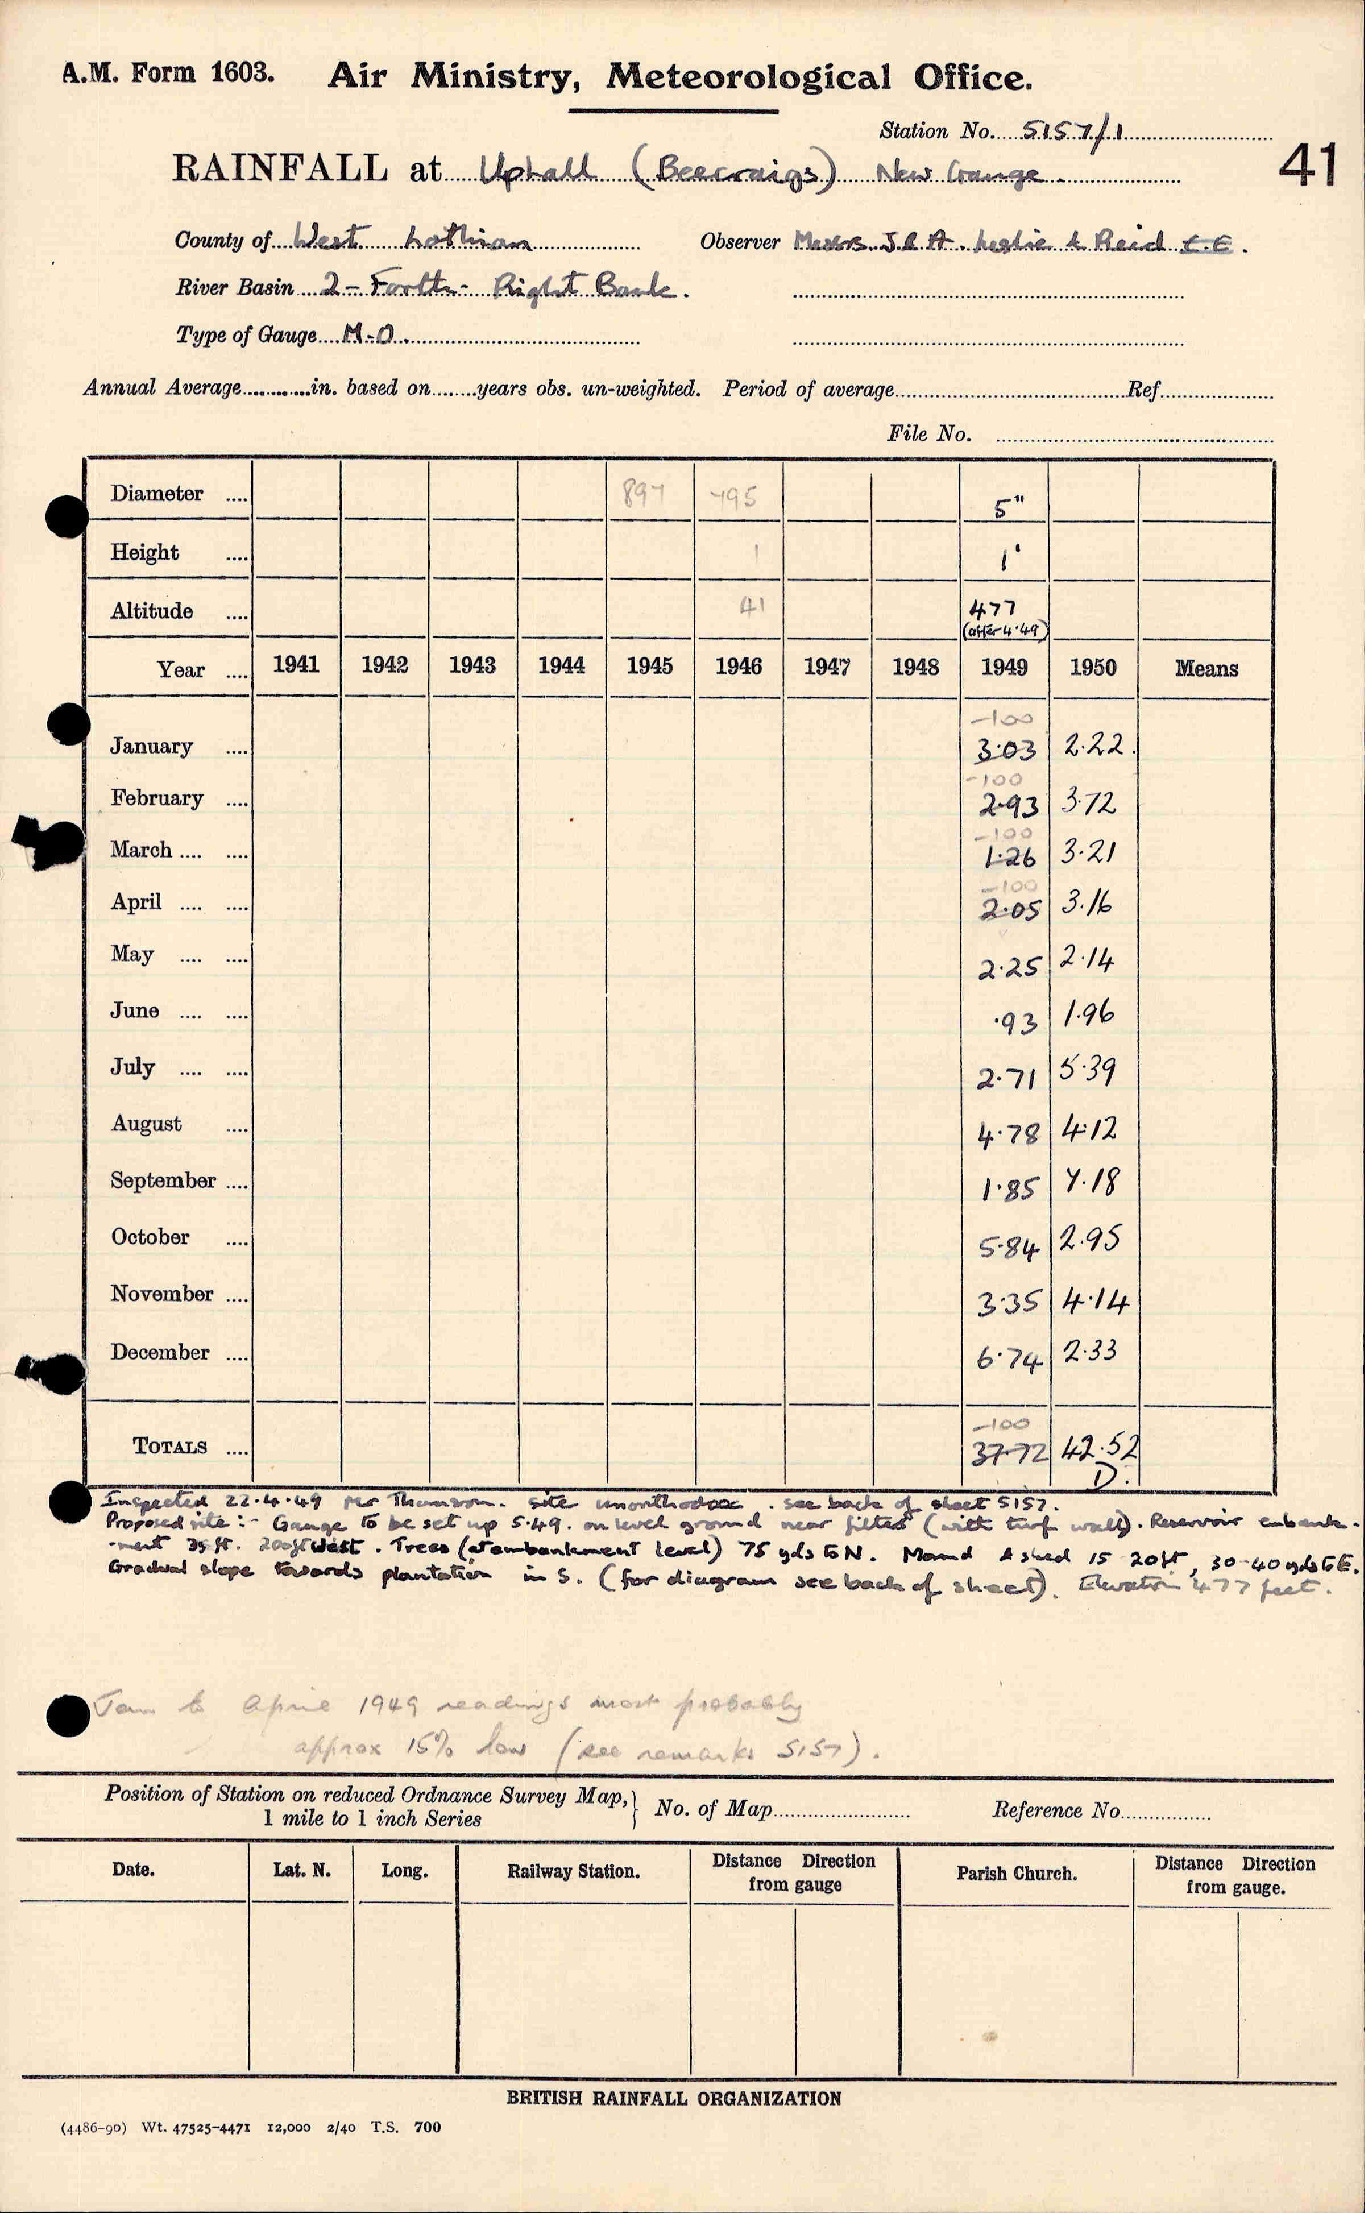 A.M. Form 1603. Air Ministry, Meteorological Office.
Station No. 5157/1
41
RAINFALL at Uphall (Beecraigs) New Gauge.
County of West Lothian Observer Messrs. J. & A. Leslie & Reid C.E.
River Basin 2 - Forth - Right Bank.
Type of Gauge M.O.
Annual Average............in. based on........years obs. un-weighted. Period of average............Ref............
File No. ............
Diameter .... 897 795 5"
Height .... 1 1'
Altitude .... 41 477 (after 4.49)
Year .... 1941 1942 1943 1944 1945 1946 1947 1948 1949 1950 Means
-100
January .... 3.03 2.22.
-100
February .... 2.93 3.72
-100
March .... .... 1.26 3.21
-100
April .... .... 2.05 3.16
May .... .... 2.25 2.14
June .... .... .93 1.96
July .... .... 2.71 5.39
August .... 4.78 4.12
September .... 1.85 7.18
October .... 5.84 2.95
November .... 3.35 4.14
December .... 6.74 2.33
-100
TOTALS .... 37.72 42.52
D.
Inspected 22.4.49 Mr Thomson. site unorthodox. see back of sheet 5157.
Proposed site :- Gauge to be set up 5.49. on level ground near filter (with turf wall). Reservoir embank-
-ment 35 ft. 200ft West. Trees (at embankment level) 75 yds to N. Mound & shed 15-20ft, 30-40 yds to E.
Gradual slope towards plantation in S. (for diagram see back of sheet). Elevation 477 feet.
Jan to April 1949 readings most probably
approx 15% low (see remarks 5157).
Position of Station on reduced Ordnance Survey Map,
1 mile to 1 inch Series
No. of Map............ Reference No............
Date. Lat. N. Long. Railway Station. Distance Direction from gauge Parish Church. Distance Direction from gauge.
BRITISH RAINFALL ORGANIZATION
(4486-90) Wt. 47525-4471 12,000 2/40 T.S. 700